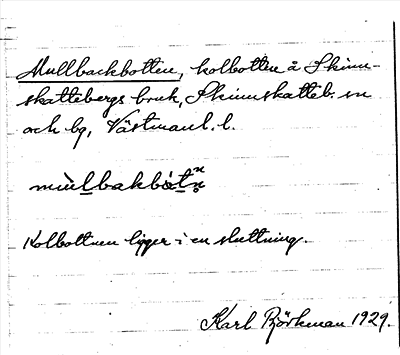 Mullbackbotten, kolbotten å Skinn-
skattebergs bruk, Skinnskatteb. sn
och bg, Västmanl. l.
Kolbottnen ligger i en sluttning.
Karl Björkman 1929.